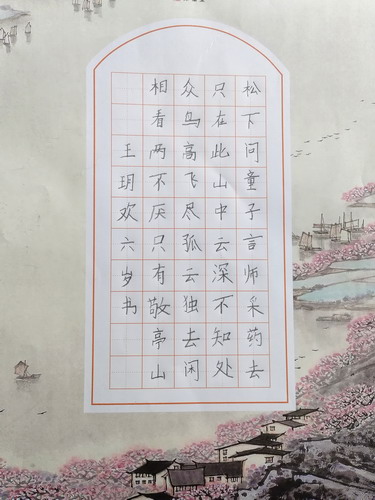 松下问童子言师采药去
只在此山中云深不知处
众鸟高飞尽孤云独去闲
相看两不厌只有敬亭山
王玥欢六岁书